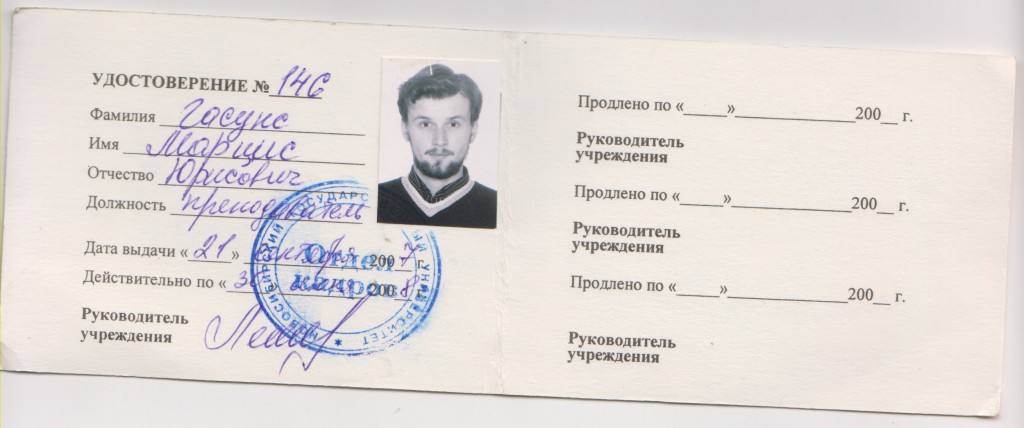 УДОСТОВЕРЕНИЕ № 146
Фамилия Гасунс
Имя Марцис
Отчество Юрисович
Должность преподаватель
Дата выдачи « 21 » сентября 200 7
Действительно по « 30 июня 200 8
Руководитель
учреждения
НОВОСИБИРСКИЙ ГОСУДАРСТВЕННЫЙ УНИВЕРСИТЕТ
Отдел
кадров
Продлено по « » 200 г.
Руководитель
учреждения
Продлено по « » 200 г.
Руководитель
учреждения
Продлено по « » 200 г.
Руководитель
учреждения